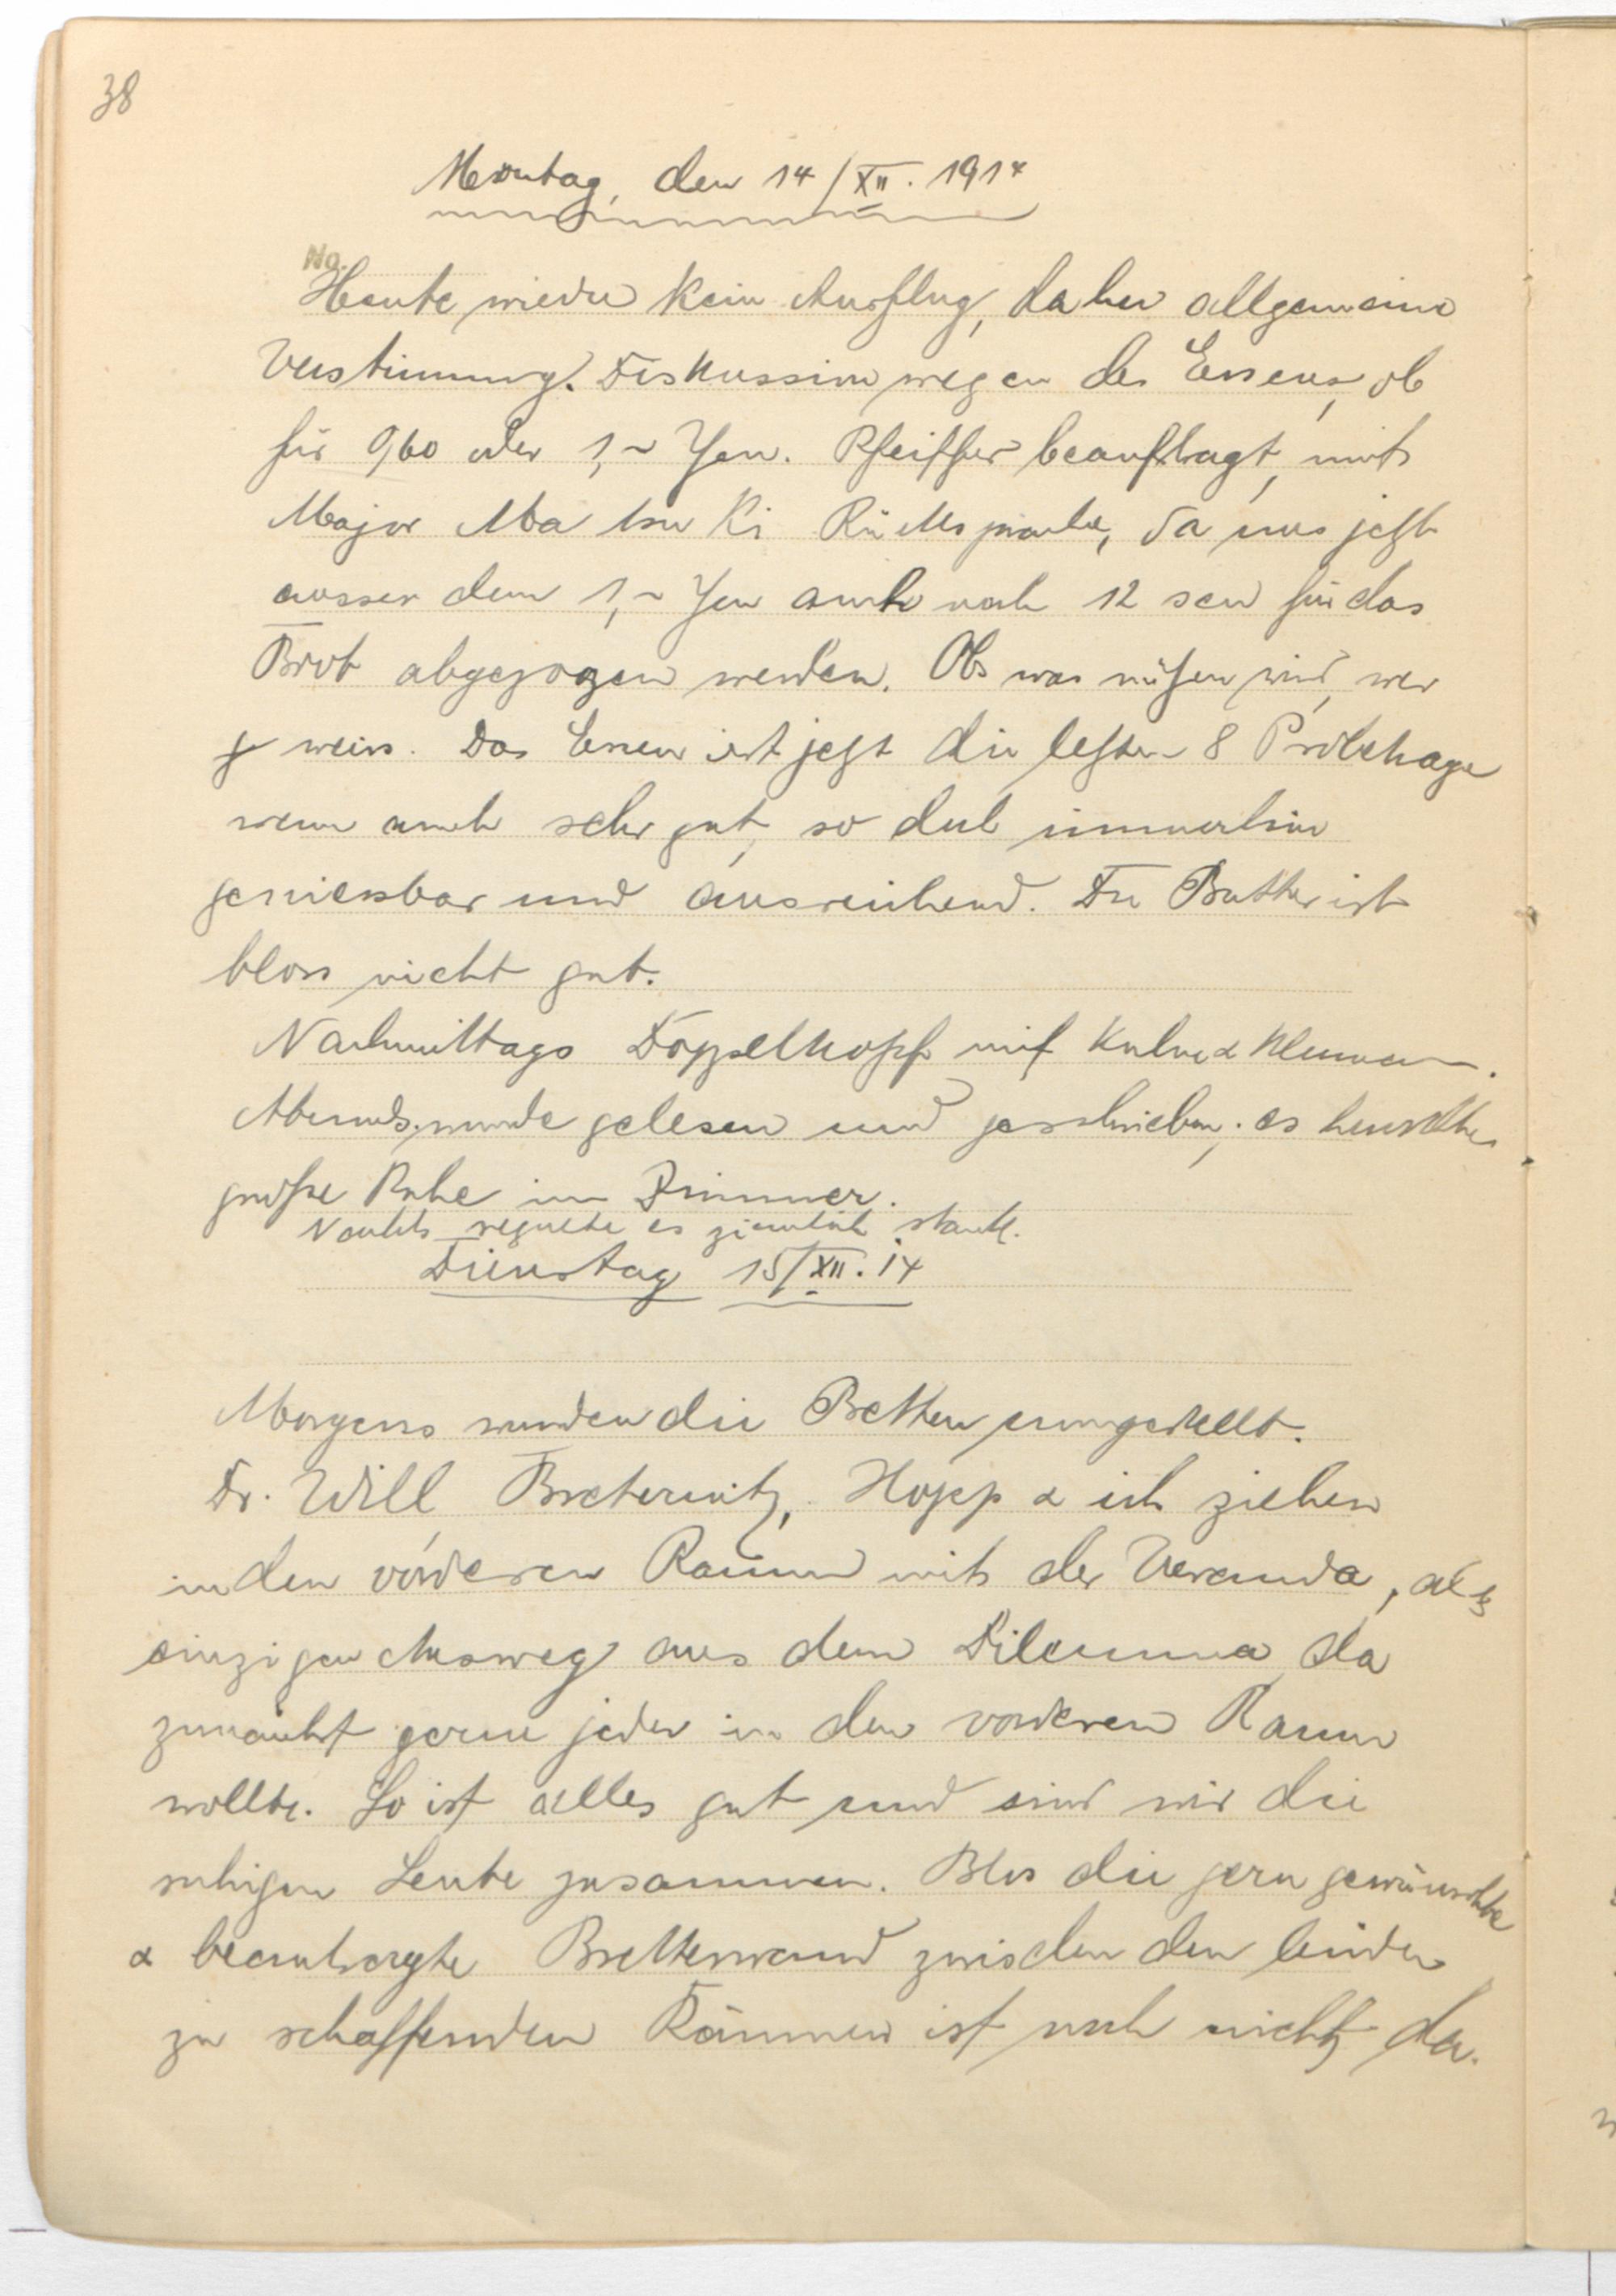 38
Montag, den 14/XII. 1914
No.
Heute wieder kein Ausflug, daher allgemeine
Verstimmung. Diskussion wegen des Essens, ob
für 0,60 oder 1,~ Yen. Pfeiffer beauftragt, mit
Major Ma tsu Ki Rücksprache, da uns jetzt
ausser dem 1,~ Yen auch noch 12 sen für das
Brot abgezogen werden. Obs was nützen wird, wer
weiss. Das Essen ist jetzt die letzten 8 Probetage
wenn auch sehr gut, so doch immerhin
geniessbar und ausreichend. Die Butter ist
bloss nicht gut.
Nachmittags Doppelkopf mit &
Abends wurde gelesen und geschrieben; es herrschte
große Ruhe im Zimmer.
Nachts regnete es ziemlich stark.
Dienstag 15/XII. 14
Morgens wurden die Betten umgestellt.
Dr. Will, Breternitz, Hopp & ich ziehen
in den vorderen Raum mit der Veranda, als
einzigen Ausweg aus dem Dilemma, da
zunächst gerne jeder in den vorderen Raum
wollte. So ist alles gut und sind wir die
ruhigen Leute zusammen. Blos die gern gewünschte
& beantragte Bretterwand zwischen den beiden
zu schaffenden Räumen ist noch nicht da.